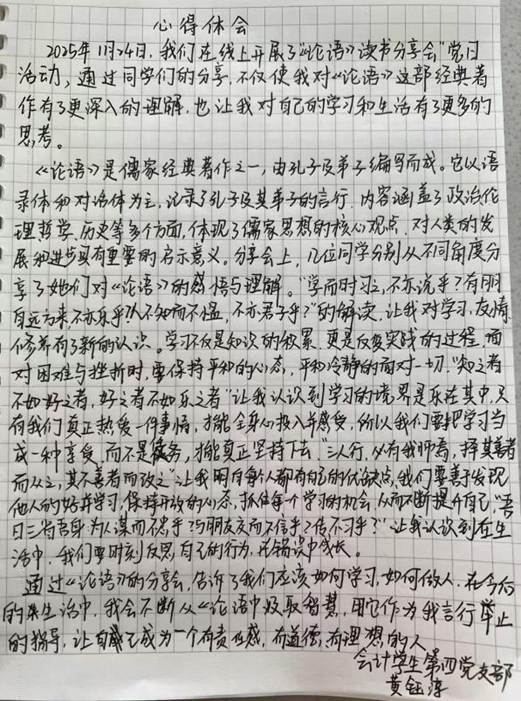 心得体会
2025年11月24日,我们在线上开展了“《论语》读书分享会”党日
活动,通过同学们的分享,不仅使我对《论语》这部经典著
作有了更深入的理解,也让我对自己的学习和生活有了更多的
思考。
《论语》是儒家经典著作之一,由孔子及弟子编写而成。它以语
录体和对话体为主,记录了孔子及其弟子的言行,内容涵盖了政治伦
理哲学、历史等多个方面,体现了儒家思想的核心观点,对人类的发
展和进步具有重要的启示意义。分享会上,几位同学分别从不同角度分
享了她们对《论语》的感悟与理解。“学而时习之,不亦说乎?有朋
自远方来,不亦乐乎?人不知而不愠,不亦君子乎?”的解读,让我对学习,友情
修养有了新的认识。学习不仅是知识的积累,更是反复实践的过程,面
对困难与挫折时,要保持平和的心态,平和冷静的面对一切。“知之者
不如好之者,好之者不如乐之者”让我认识到学习的境界是乐在其中,只
有我们真正热爱一件事情,才能全身心投入并感受,所以我们要把学习当
成一种享受,而不是任务,才能真正坚持下去。“三人行,必有我师焉,择其善者
而从之,其不善者而改之”让我明白每个人都有自己的优缺点,我们要善于发现
他人的好并学习,保持开放的心态,抓住每一个学习的机会,从而不断提升自己。“吾
日三省吾身:为人谋而不忠乎?与朋友交而不信乎?传不习乎?”让我认识到在生
活中,我们要时刻反思自己的行为,在错误中成长。
通过《论语》的分享会,告诉了我们应该如何学习,如何做人,在今后
的生活中,我会不断从《论语中汲取智慧,用它作为我言行举止
的指导,让自己成为一个有责任感,有道德,有理想的人
会计学生第四党支部
黄钰淳